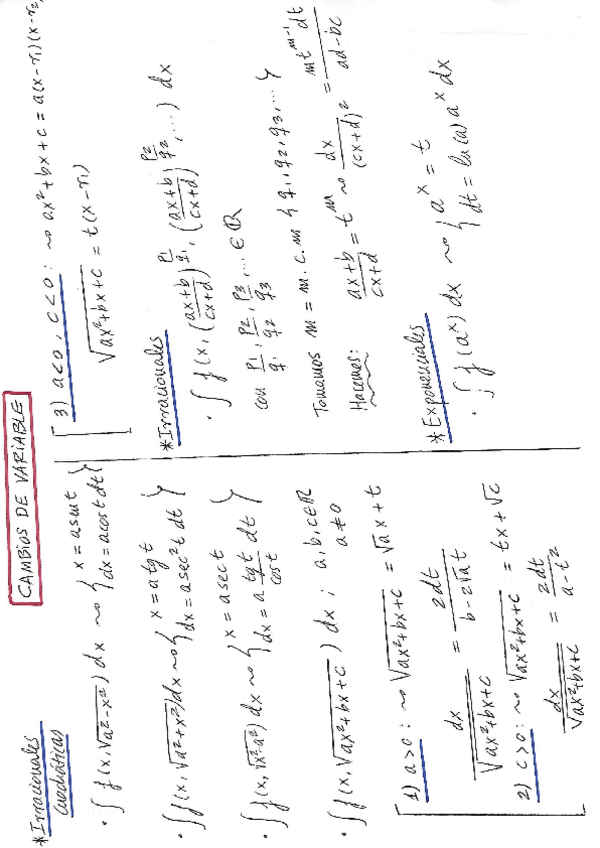 CAMBIOS DE VARIABLE
*Irracionales
Cuadráticas
· ∫ f(x, √a²-x²) dx ~> { x = a sent
dx = a cost dt }
· ∫ f(x, √a²+x²) dx ~> { x = a tg t
dx = a sec² t dt }
· ∫ f(x, √x²-a²) dx ~> { x = a sec t
dx = a tg t/cos t dt }
· ∫ f(x, √ax²+bx+c) dx ; a,b,c ∈ ℝ
a ≠ 0
1) a>0 : ~> √ax²+bx+c = √a x + t
dx/√ax²+bx+c = 2dt/b-2√a t
2) c>0 : ~> √ax²+bx+c = tx + √c
dx/√ax²+bx+c = 2dt/a-t²
3) a<0, c<0 : ~> ax²+bx+c = a(x-r₁)(x-r₂)
√ax²+bx+c = t(x-r₁)
*Irracionales
· ∫ f(x, (ax+b/cx+d)^p₁/q₁, (ax+b/cx+d)^p₂/q₂, ...) dx
con p₁/q₁, p₂/q₂, p₃/q₃, ... ∈ ℚ
Tomamos m = m.c.m {q₁, q₂, q₃, ...}
Hacemos: ax+b/cx+d = t^m ~> dx/(cx+d)² = mt^m-1 dt/ad-bc
*Exponenciales
· ∫ f(a^x) dx ~> { a^x = t
dt = ln(a) a^x dx